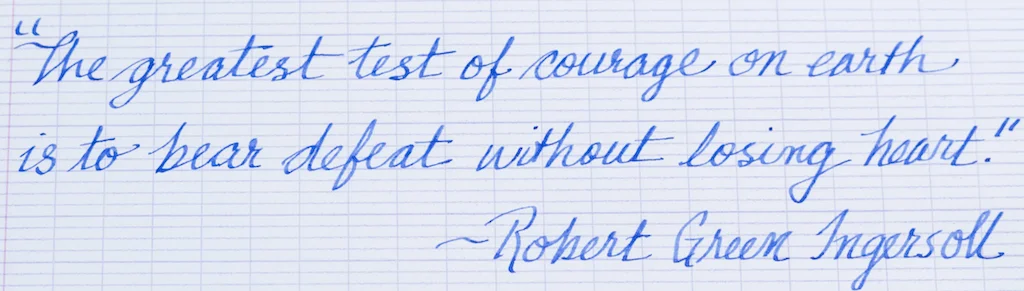 "The greatest test of courage on earth
is to bear defeat without losing heart."
~Robert Green Ingersoll